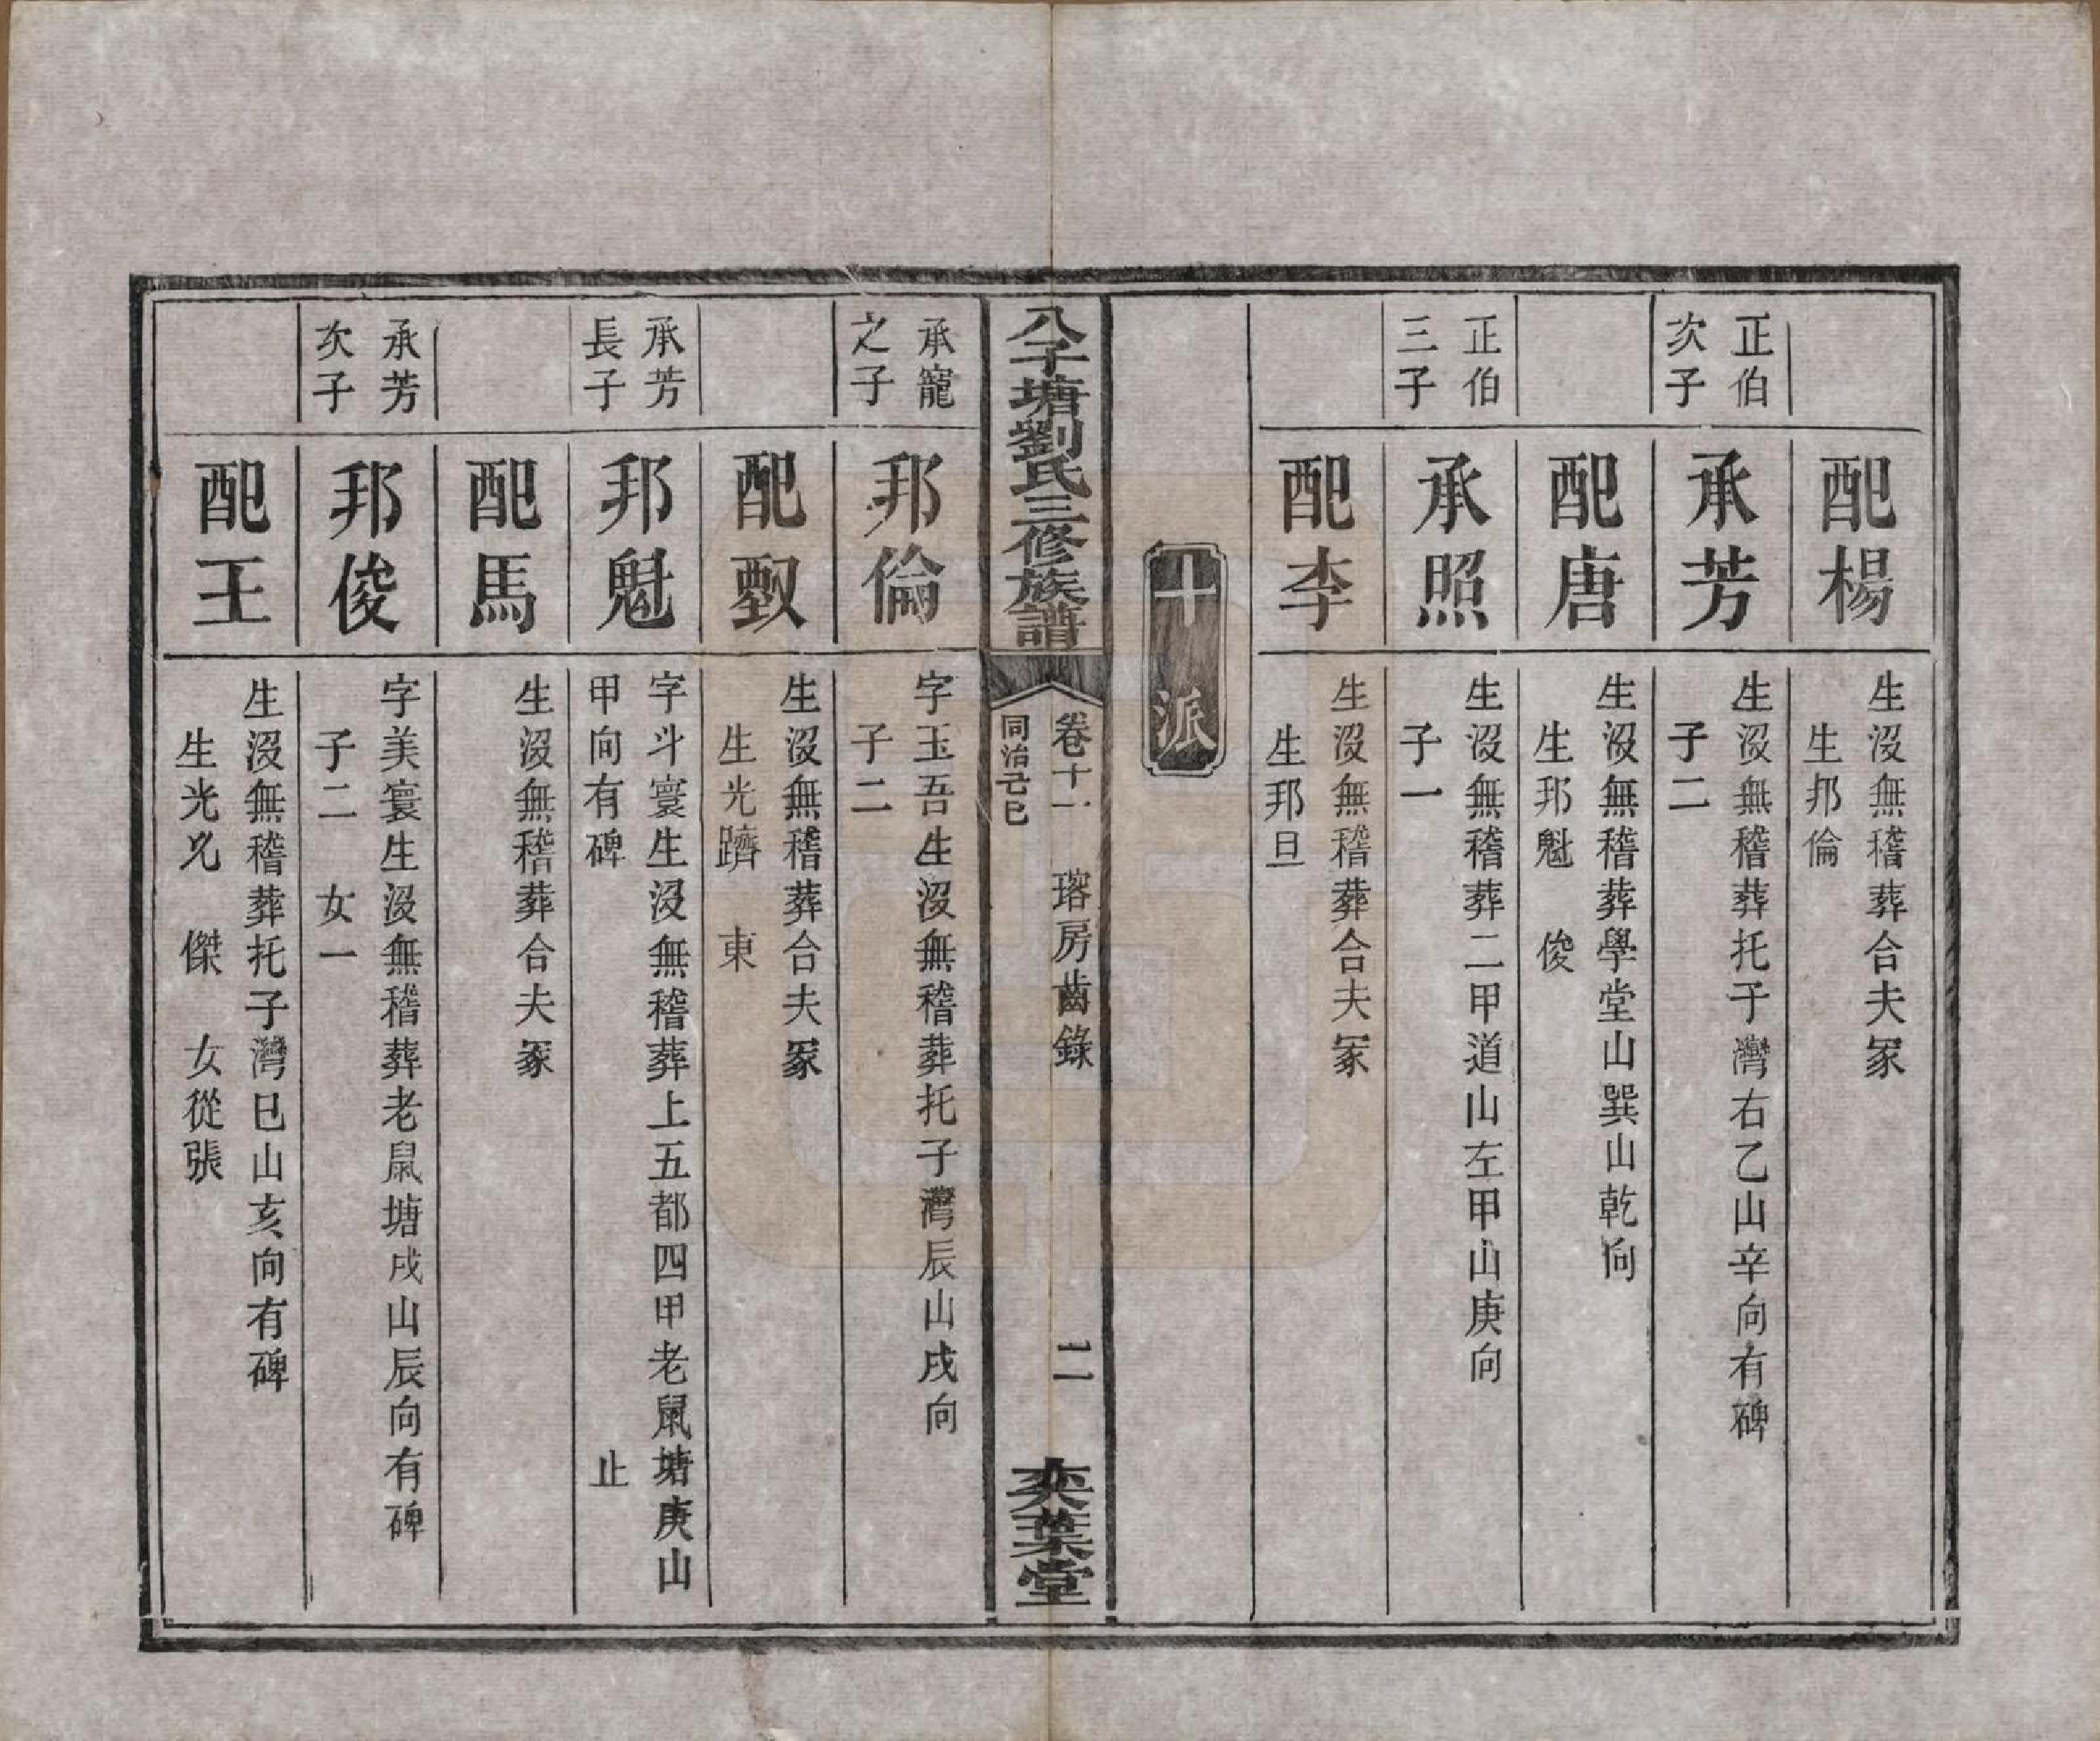 配楊
生沒無稽葬合夫冢
生邦倫
正伯
次子
承芳
生沒無稽葬托子灣右乙山辛向有碑
子二
配唐
生沒無稽葬學堂山巽山乾向
生邦魁　俊
正伯
三子
承照
生沒無稽葬二甲道山左甲山庚向
子一
配李
生沒無稽葬合夫冢
生邦旦
十派
八千塘劉氏三修族譜
卷十一　瑢房齒錄　二
同治己巳
奕葉堂
承寵
之子
邦倫
字玉吾生沒無稽葬托子灣辰山戌向
子二
配
生沒無稽葬合夫冢
生光躋　東
承芳
長子
邦魁
字斗寰生沒無稽葬上五都四甲老鼠塘庚山
甲向有碑　止
配馬
生沒無稽葬合夫冢
承芳
次子
邦俊
字美寰生沒無稽葬老鼠塘戌山辰向有碑
子二　女一
配王
生沒無稽葬托子灣巳山亥向有碑
生光　傑　女從張